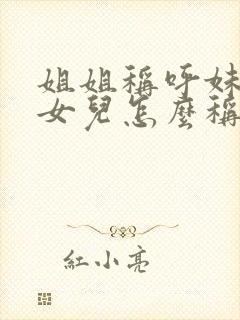 姐姐稱呼妹
女兒怎麼稱
紅小亮